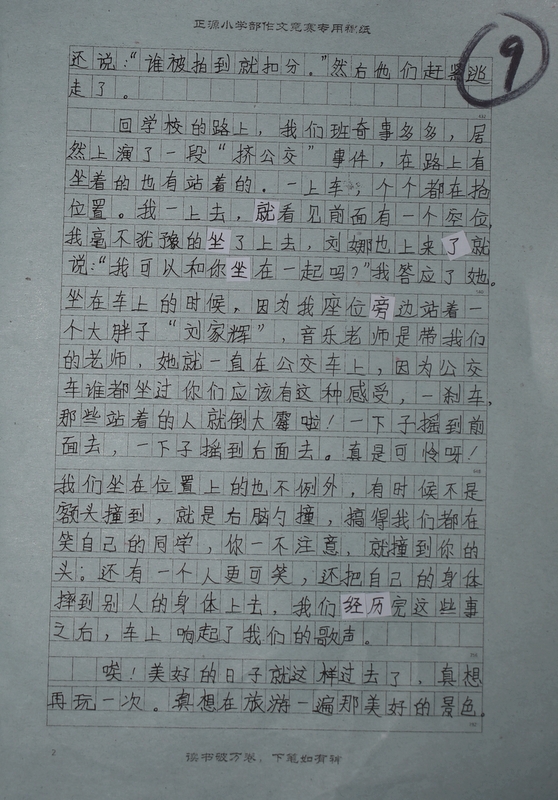 正源小学部作文竞赛专用稿纸
9
还说：“谁被拍到就扣分。”然右他们赶紧逃
走了。
回学校的路上，我们班奇事多多，居
然上演了一段“挤公交”事件，在路上有
坐着的也有站着的．一上车，个个都在抢
位置。我一上去，就看见前面有一个空位，
我毫不犹豫的坐了上去，刘娜也上来了就
说：“我可以和你坐在一起吗？”我答应了她。
坐在车上的时候，因为我座位旁边站着一
个大胖子“刘家辉”，音乐老师是带我们
的老师，她就一直在公交车上，因为公交
车谁都坐过你们应该有这种感受，一刹车，
那些站着的人就倒大霉啦！一下子摇到前
面去，一下子摇到右面去。真是可怜呀！
我们坐在位置上的也不例外，有时候不是
额头撞到，就是右脑勺撞，搞得我们都在
笑自己的同学，你一不注意，就撞到你的
头；还有一个人更可笑，还把自己的身体
摔到别人的身体上去，我们经历完这些事
之右，车上响起了我们的歌声。
唉！美好的日子就这样过去了，真想
再玩一次。真想在旅游一遍那美好的景色。
2
读书破万卷，下笔如有神